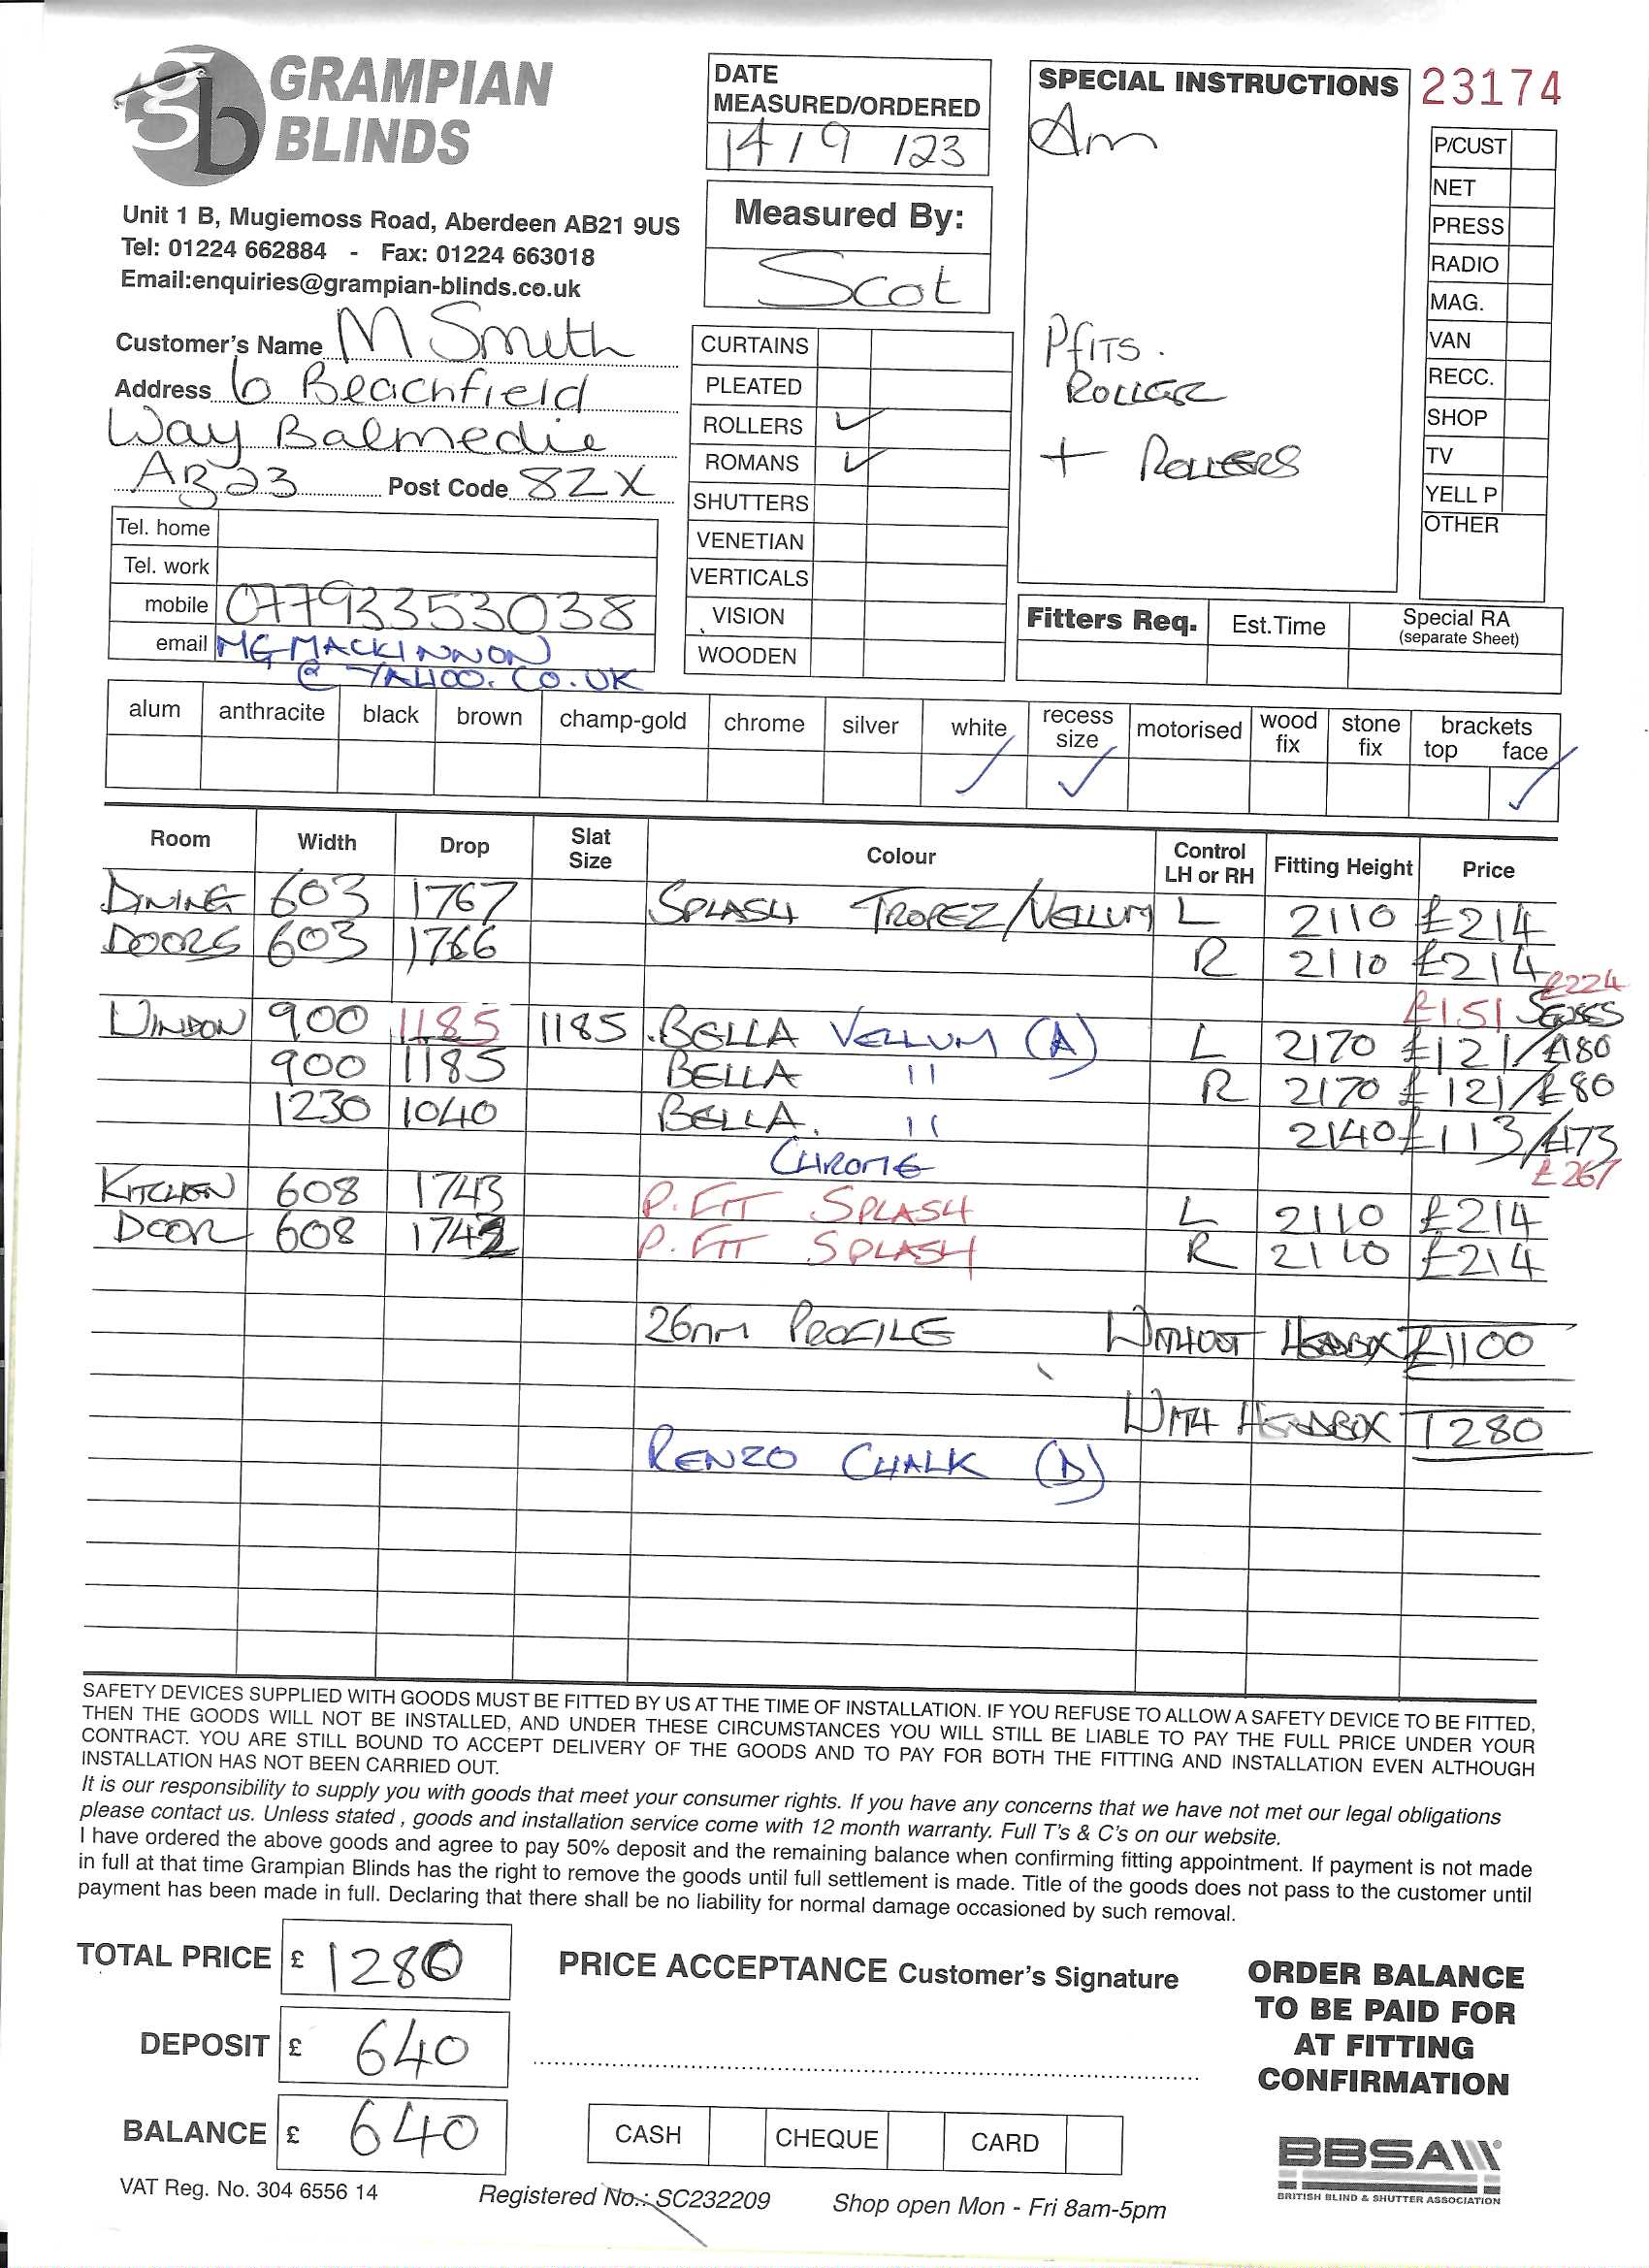 gb GRAMPIAN
BLINDS
Unit 1 B, Mugiemoss Road, Aberdeen AB21 9US
Tel: 01224 662884 - Fax: 01224 663018
Email:enquiries@grampian-blinds.co.uk
Customer's Name M Smith
Address 6 Beachfield
Way Balmedie
AB23 Post Code 8ZX
Tel. home
Tel. work
mobile 07793353038
email MGMACKINNON
@ YAHOO.CO.UK
DATE
MEASURED/ORDERED
14/9/23
Measured By:
Scot
CURTAINS
PLEATED
ROLLERS ✓
ROMANS ✓
SHUTTERS
VENETIAN
VERTICALS
VISION
WOODEN
SPECIAL INSTRUCTIONS
Am
PFITS.
ROLLER
+ ROLLERS
23174
P/CUST
NET
PRESS
RADIO
MAG.
VAN
RECC.
SHOP
TV
YELL P
OTHER
Fitters Req. Est.Time Special RA
(separate Sheet)
alum anthracite black brown champ-gold chrome silver white recess size motorised wood fix stone fix brackets top face
✓ ✓ ✓
Room Width Drop Slat Size Colour Control LH or RH Fitting Height Price
DINING 603 1767 SPLASH TROPEZ/VELLUM L 2110 £214
DOORS 603 1766 R 2110 £214
£224
£151
WINDOW 900 1185 1185 .BELLA VELLUM (A) L 2170 £121/£180
900 1185 BELLA " R 2170 £121/£80
1230 1040 BELLA. " 2140 £113/£173
CHROME £267
KITCHEN 608 1743 P. FIT SPLASH L 2110 £214
DOOR 608 1742 P. FIT SPLASH R 2110 £214
26mm PROFILE WITHOUT HEADBOX £1100
WITH HEADBOX 1280
RENZO CHALK (D)
SAFETY DEVICES SUPPLIED WITH GOODS MUST BE FITTED BY US AT THE TIME OF INSTALLATION. IF YOU REFUSE TO ALLOW A SAFETY DEVICE TO BE FITTED,
THEN THE GOODS WILL NOT BE INSTALLED, AND UNDER THESE CIRCUMSTANCES YOU WILL STILL BE LIABLE TO PAY THE FULL PRICE UNDER YOUR
CONTRACT. YOU ARE STILL BOUND TO ACCEPT DELIVERY OF THE GOODS AND TO PAY FOR BOTH THE FITTING AND INSTALLATION EVEN ALTHOUGH
INSTALLATION HAS NOT BEEN CARRIED OUT.
It is our responsibility to supply you with goods that meet your consumer rights. If you have any concerns that we have not met our legal obligations
please contact us. Unless stated , goods and installation service come with 12 month warranty. Full T's & C's on our website.
I have ordered the above goods and agree to pay 50% deposit and the remaining balance when confirming fitting appointment. If payment is not made
in full at that time Grampian Blinds has the right to remove the goods until full settlement is made. Title of the goods does not pass to the customer until
payment has been made in full. Declaring that there shall be no liability for normal damage occasioned by such removal.
TOTAL PRICE £ 1280
DEPOSIT £ 640
BALANCE £ 640
PRICE ACCEPTANCE Customer's Signature
CASH CHEQUE CARD
ORDER BALANCE
TO BE PAID FOR
AT FITTING
CONFIRMATION
BBSA
BRITISH BLIND & SHUTTER ASSOCIATION
VAT Reg. No. 304 6556 14 Registered No.: SC232209 Shop open Mon - Fri 8am-5pm